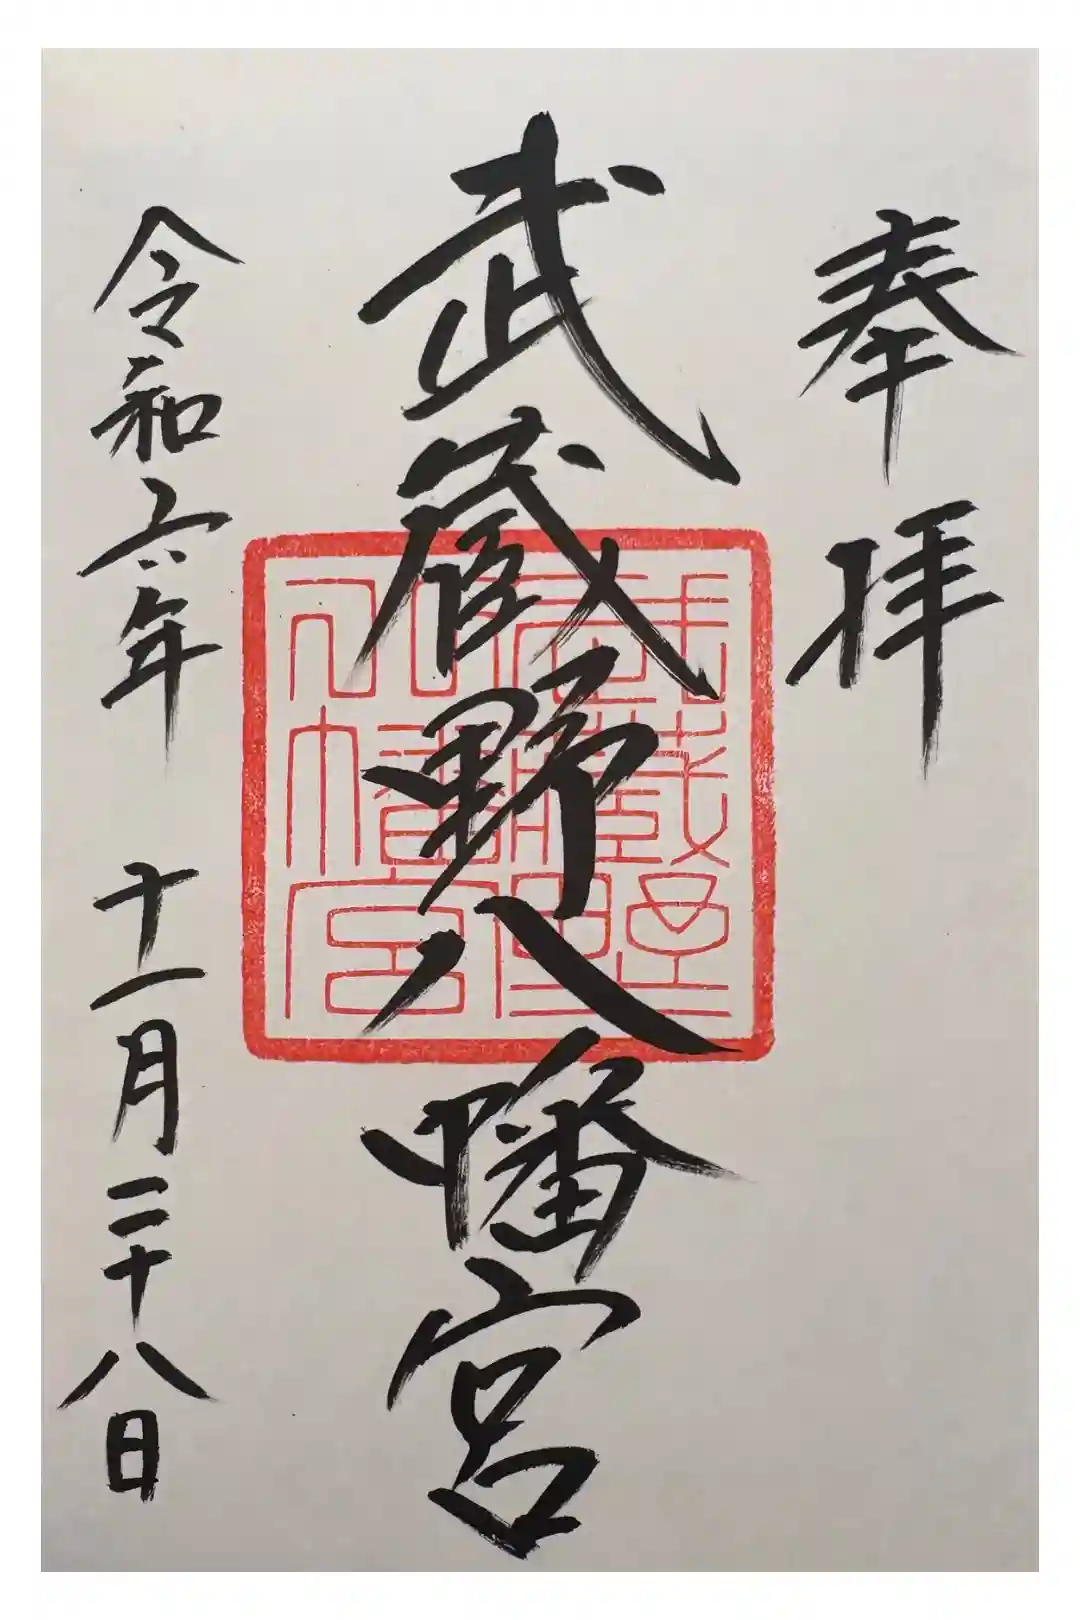 奉拝
武蔵野八幡宮
武蔵野坐八幡宮
令和六年 十一月二十八日